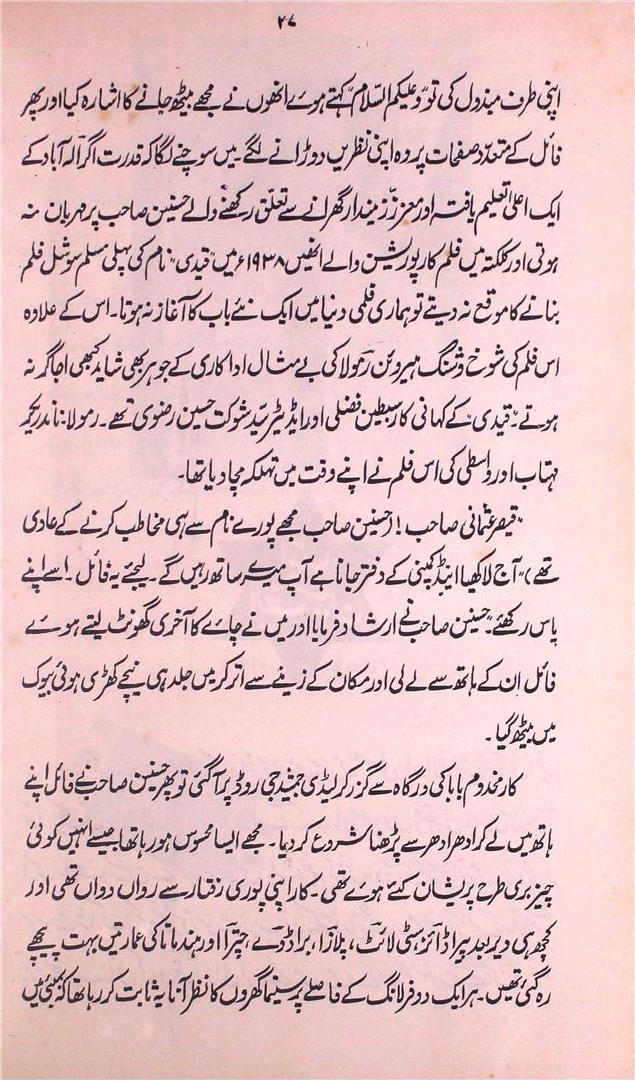 ۲۷
اپنی طرف مبذول کی تو ”وعلیکم السّلام“ کہتے ہوئے انھوں نے مجھے بیٹھ جانے کا اشارہ کیا اور پھر
فائل کے متعدّد صفحات پر وہ اپنی نظریں دوڑانے لگے۔ میں سوچنے لگا کہ قدرت اگر الہ آباد کے
ایک اعلیٰ تعلیم یافتہ اور معزز زمیندار گھرانے سے تعلّق رکھنے والے حسنین صاحب پر مہربان نہ
ہوتی اور کلکتہ میں فلم کارپوریشن والے انھیں ۱۹۳۸ء میں ”قیدی“ نام کی پہلی مسلم سوشل فلم
بنانے کا موقع نہ دیتے تو ہماری فلمی دنیا میں ایک نئے باب کا آغاز نہ ہوتا۔ اس کے علاوہ
اس فلم کی شوخ و شنگ ہیروئن رمولا کی بے مثال اداکاری کے جوہر بھی شاید کبھی اجاگر نہ
ہوتے۔ ”قیدی“ کے کہانی کار سبطین فضلی اور ایڈیٹر سیّد شوکت حسین رضوی تھے۔ رمولا، نندریکر
مہتاب اور واسطی کی اس فلم نے اپنے وقت میں تہلکہ مچا دیا تھا۔
”قیصر عثمانی صاحب! (حسنین صاحب مجھے پورے نام سے ہی مخاطب کرنے کے عادی
تھے)“ آج لاکھیا اینڈ کمپنی کے دفتر جانا ہے آپ میرے ساتھ رہیں گے۔ لیجئے یہ فائل۔ اسے اپنے
پاس رکھئے۔“ حسنین صاحب نے ارشاد فرمایا اور میں نے چائے کا آخری گھونٹ لیتے ہوئے
فائل ان کے ہاتھ سے لے لی اور مکان کے زینے سے اتر کر میں جلد ہی نیچے کھڑی ہوئی بیوک
میں بیٹھ گیا۔
کار مخدوم بابا کی درگاہ سے گزر کر لیڈی جمشید جی روڈ پر آگئی تو پھر حسنین صاحب نے فائل اپنے
ہاتھ میں لے کر ادھر ادھر سے پڑھنا شروع کر دیا۔ مجھے ایسا محسوس ہو رہا تھا جیسے انہیں کوئی
چیز بری طرح پریشان کئے ہوئے تھی۔ کار اپنی پوری رفتار سے رواں دواں تھی اور
کچھ ہی دیر بعد پیراڈائز، سٹی لائٹ، پلازا، براڈوے، چترا اور ہندماتا کی عمارتیں بہت پیچھے
رہ گئی تھیں۔ ہر ایک دو فرلانگ کے فاصلے پر سنیما گھروں کا نظر آنا یہ ثابت کر رہا تھا کہ بمبئی میں